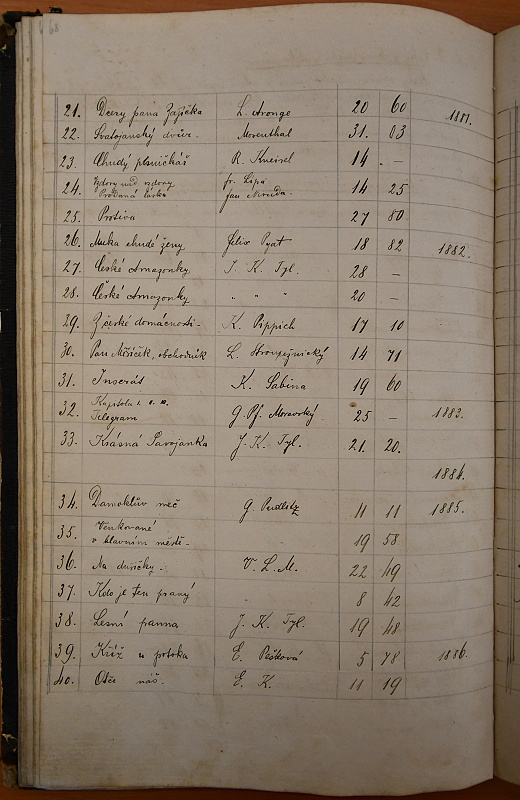 68
21. Dcery pana Zajíčka L. Aronge 20 60 1881.
22. Svatojanský dvůr. Mosenthal 31. 03
23. Chudý písničkář R. Kneisel 14 . –
24. Vzdory nad vzdory fr. Lipá 14 25
Prodaná láska Jan Neruda.
25. Protiva 27 80
26. Muka chudé ženy Felix Pyat 18 82 1882.
27. České Amazonky J. K. Tyl. 28 –
28. České Amazonky „ „ „ 20 –
29. Z české domácnosti. K. Pippich 17 10
30. Pan Měsíček, obchodník L. Stroupežnický 14 71
31. Inserát K. Sabina 19 60
32. Kapitola I. II. III. G. Pf. Moravský. 25 – 1883.
Telegram
33. Krásná Savojanka J. K. Tyl. 21. 20.
1884.
34. Damoklův meč G. Pudlitz 11 11 1885.
35. Venkované 19 58
v hlavním městě.
36. Na dušičky. V. L. M. 22 49
37. Kdo je ten pravý 8 42
38. Lesní panna J. K. Tyl. 19 48
39. Kříž u potoka E. Pešková 5 78 1886.
40. Otče náš. E. K. 11 19